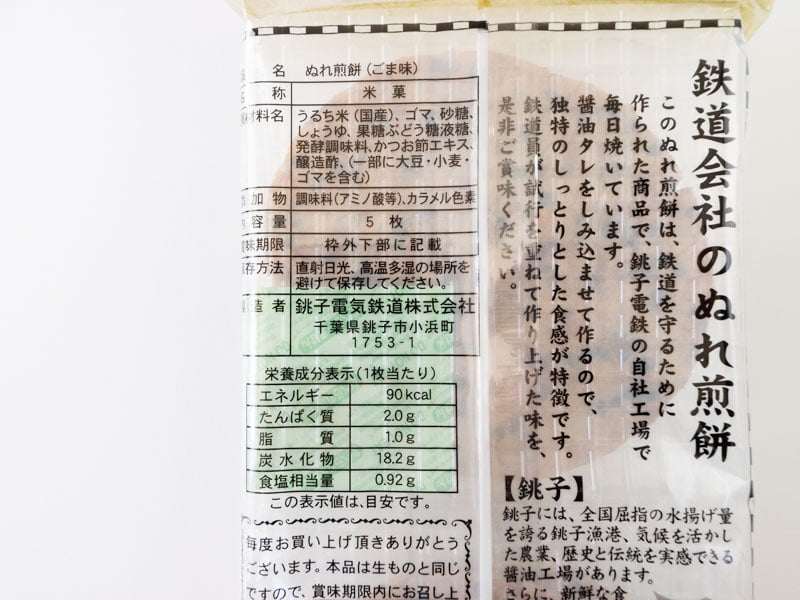 名 ぬれ煎餅(ごま味)
称 米菓
材料名 うるち米(国産)、ゴマ、砂糖、
しょうゆ、果糖ぶどう糖液糖、
発酵調味料、かつお節エキス、
醸造酢、(一部に大豆・小麦・
ゴマを含む)
加物 調味料(アミノ酸等)、カラメル色素
内容量 5枚
味期限 枠外下部に記載
存方法 直射日光、高温多湿の場所を
避けて保存してください。
造者 銚子電気鉄道株式会社
千葉県銚子市小浜町
1753-1
栄養成分表示(1枚当たり)
エネルギー 90kcal
たんぱく質 2.0g
脂質 1.0g
炭水化物 18.2g
食塩相当量 0.92g
この表示値は、目安です。
毎度お買い上げ頂きありがとう
ございます。本品は生ものと同じ
ですので、賞味期限内にお召し上
鉄道会社のぬれ煎餅
このぬれ煎餅は、鉄道を守るために
作られた商品で、銚子電鉄の自社工場で
毎日焼いています。
醤油タレをしみ込ませて作るので、
独特のしっとりとした食感が特徴です。
鉄道員が試行を重ねて作り上げた味を、
是非ご賞味ください。
【銚子】
銚子には、全国屈指の水揚げ量
を誇る銚子漁港、気候を活かし
た農業、歴史と伝統を実感できる
醤油工場があります。
さらに、新鮮な食